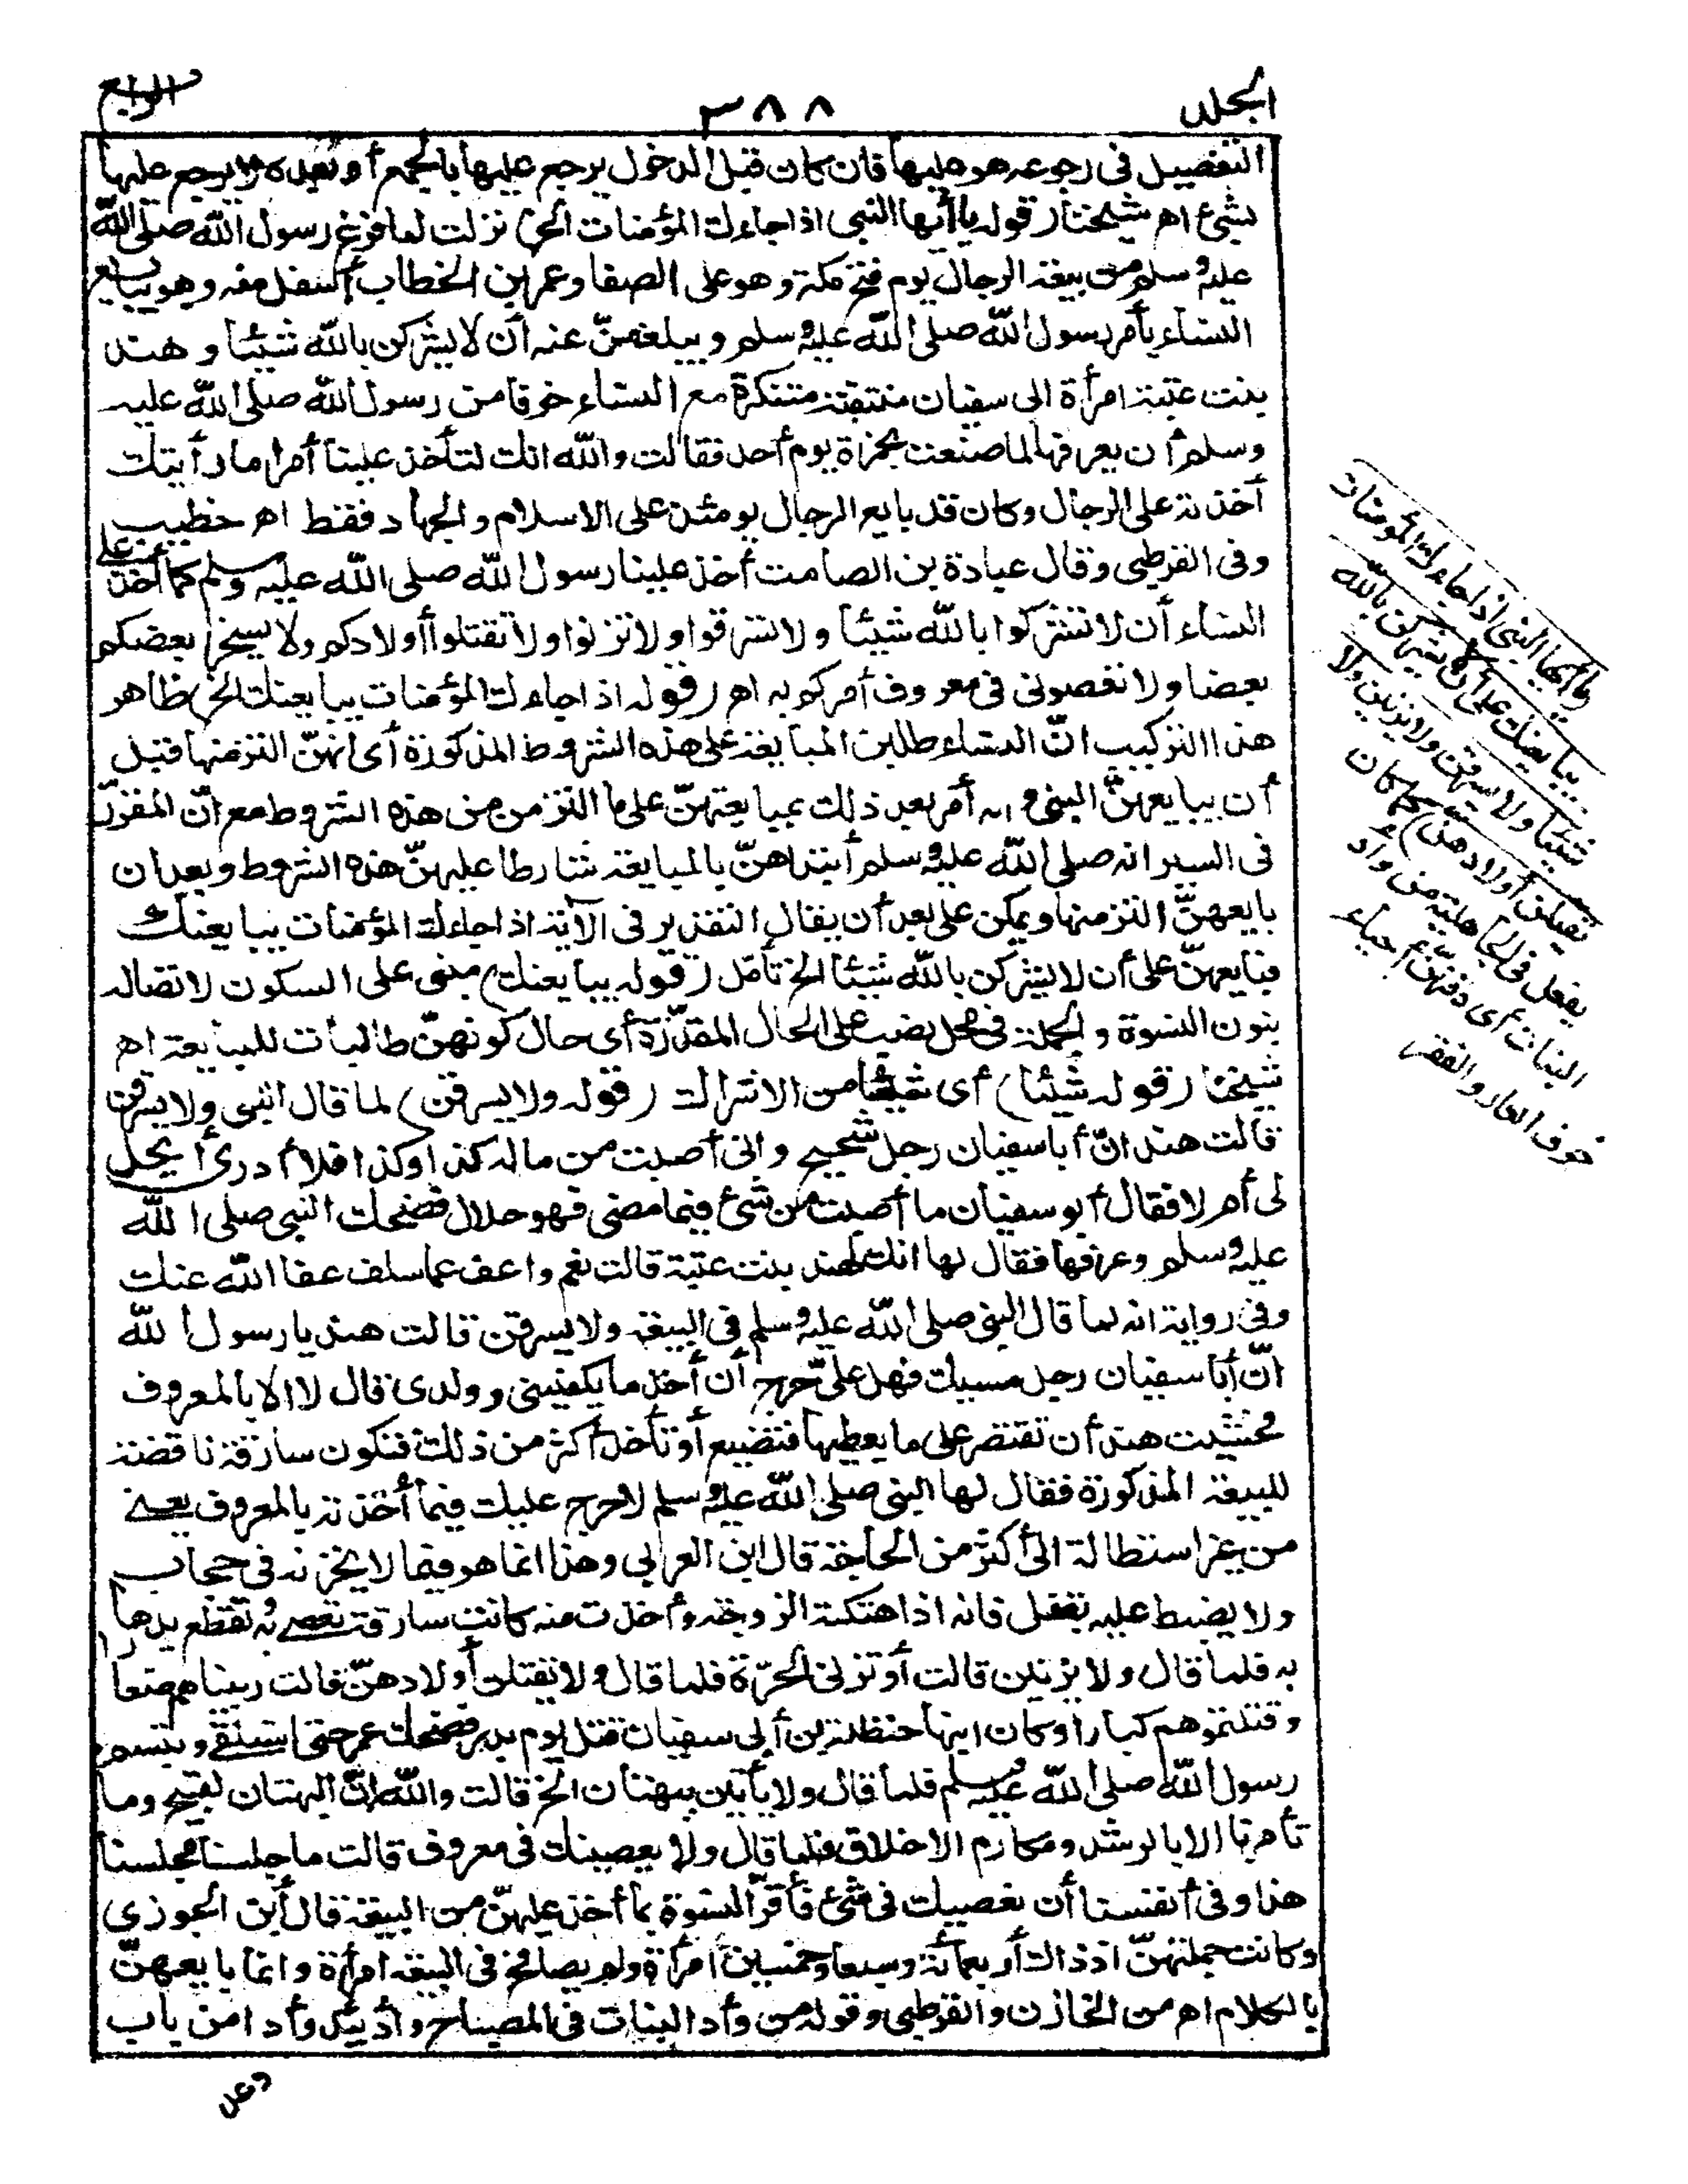 الجلد
٣٨٨
الرابع
التفصيل فى رجوعه هو عليها فان كان قبل الدخول يرجع عليها بالجميع أو بعده لا يرجع عليها
بشئ اه شيخنا (قوله يا أيها النبى اذا جاءك المؤمنات الخ) نزلت لما فرغ رسول الله صلى الله
عليه وسلم من بيعة الرجال يوم فتح مكة وهو على الصفا وعمر ابن الخطاب أسفل منه وهو يبايع
النساء بأمر رسول الله صلى الله عليه وسلم ويبلغهنّ عنه أن لا يشركن بالله شيئا وهند
بنت عتبة امرأة ابى سفيان منتقبة متنكرة مع النساء خوفا من رسول الله صلى الله عليه
وسلم أن يعرفها لما صنعت بحمزة يوم أحد فقالت والله انك لتأخذ علينا أمرا ما رأيتك
أخذته على الرجال وكان قد بايع الرجال يومئذ على الاسلام والجهاد فقط اه خطيب
وفى القرطبى وقال عبادة بن الصامت أخذ علينا رسول الله صلى الله عليه وسلم كما أخذ على
النساء أن لا تشركوا بالله شيئا ولا تسرقوا ولا تزنوا ولا تقتلوا أولادكم ولا يسخر بعضكم
بعضا ولا تعصونى فى معروف أمركم به اه (قوله اذا جاءك المؤمنات يبايعنك الخ) ظاهر
هذا التركيب انّ النساء طلبن المبايعة على هذه الشروط المذكورة أى انهنّ التزمنها قبل
أن يبايعهنّ النبى وانه أمر بعد ذلك بمبايعتهنّ على ما التزمن من هذه الشروط مع انّ المقرر
فى السير انه صلى الله عليه وسلم أبتداهنّ بالمبايعة شارطا عليهنّ هذه الشروط وبعد ان
بايعهنّ التزمنها ويمكن على بعد أن يقال التقدير فى الآية اذا جاءك المؤمنات يبايعنك
فبايعهنّ على أن لا يشركن بالله شيئا الخ تأمل (قوله يبايعنك) مبنى على السكون لاتصاله
بنون النسوة والجملة فى محل نصب على الحال المقدّرة أى حال كونهنّ طالبات للمبايعة اه
شيخنا (قوله شيئا) أى شيئا من الاشراك (قوله ولا يسرقن) لما قال النبى ولا يسرقن
قالت هند انّ أبا سفيان رجل شحيح وانى أصبت من ماله كذا وكذا فلا أدرى أيحل
لى أم لا فقال أبو سفيان ما أصبت من شئ فيما مضى فهو حلال فضحك النبى صلى الله
عليه وسلم وعرفها فقال لها انك لهند بنت عتبة قالت نعم واعف عما سلف عفا الله عنك
وفى رواية انه لما قال النبى صلى الله عليه وسلم فى البيعة ولا يسرقن قالت هند يا رسول الله
انّ أبا سفيان رجل مسيك فهل علىّ حرج أن أخذ ما يكفينى وولدى قال لا الا بالمعروف
فخشيت هند أن تقتصر على ما يعطيها فتضيع أو تأخذ أكثر من ذلك فتكون سارقة ناقضة
للبيعة المذكورة فقال لها النبى صلى الله عليه وسلم لا حرج عليك فيما أخذته بالمعروف يعنى
من غير استطالة الى أكثر من الحاجة قال ابن العربى وهذا انما هو فيما لا يخزنه فى حجاب
ولا يضبط عليه بقفل فانه اذا هتكته الزوجة وأخذت منه كانت سارقة تعصى به وتقطع يدها
به فلما قال ولا يزنين قالت أو تزنى الحرّة فلما قال ولا يقتلن أولادهنّ قالت ربيناهم صغارا
وقتلتموهم كبارا وكان ابنها حنظلة بن أبى سفيان قتل يوم بدر فضحك عمر حتى استلقى وتبسم
رسول الله صلى الله عليه وسلم فلما قال ولا يأتين ببهتان الخ قالت والله انّ البهتان لقبيح وما
تأمرنا الا بالرشد ومكارم الاخلاق فلما قال ولا يعصينك فى معروف قالت ما جلسنا مجلسنا
هذا وفى أنفسنا أن نعصيك فى شئ فأقرّ النسوة بما أخذ عليهنّ من البيعة قال أبن الجوزى
وكانت جملتهنّ اذ ذاك أربعمائة وسبعا وخمسين امرأة ولم يصافح فى البيعة امرأة وانما بايعهنّ
بالكلام اه من الخازن والقرطبى وقوله من وأد البنات فى المصباح وأد بنته وأدا من باب
وعد
يا أيها النبى اذا جاءك المؤمنات
يبايعنك على أن لا يشركن بالله
شيئا ولا يسرقن ولا يزنين ولا
يقتلن أولادهن) كما كان
يفعل فى الجاهلية من وأد
البنات أى دفنهنّ أحياء
خوف العار والفقر